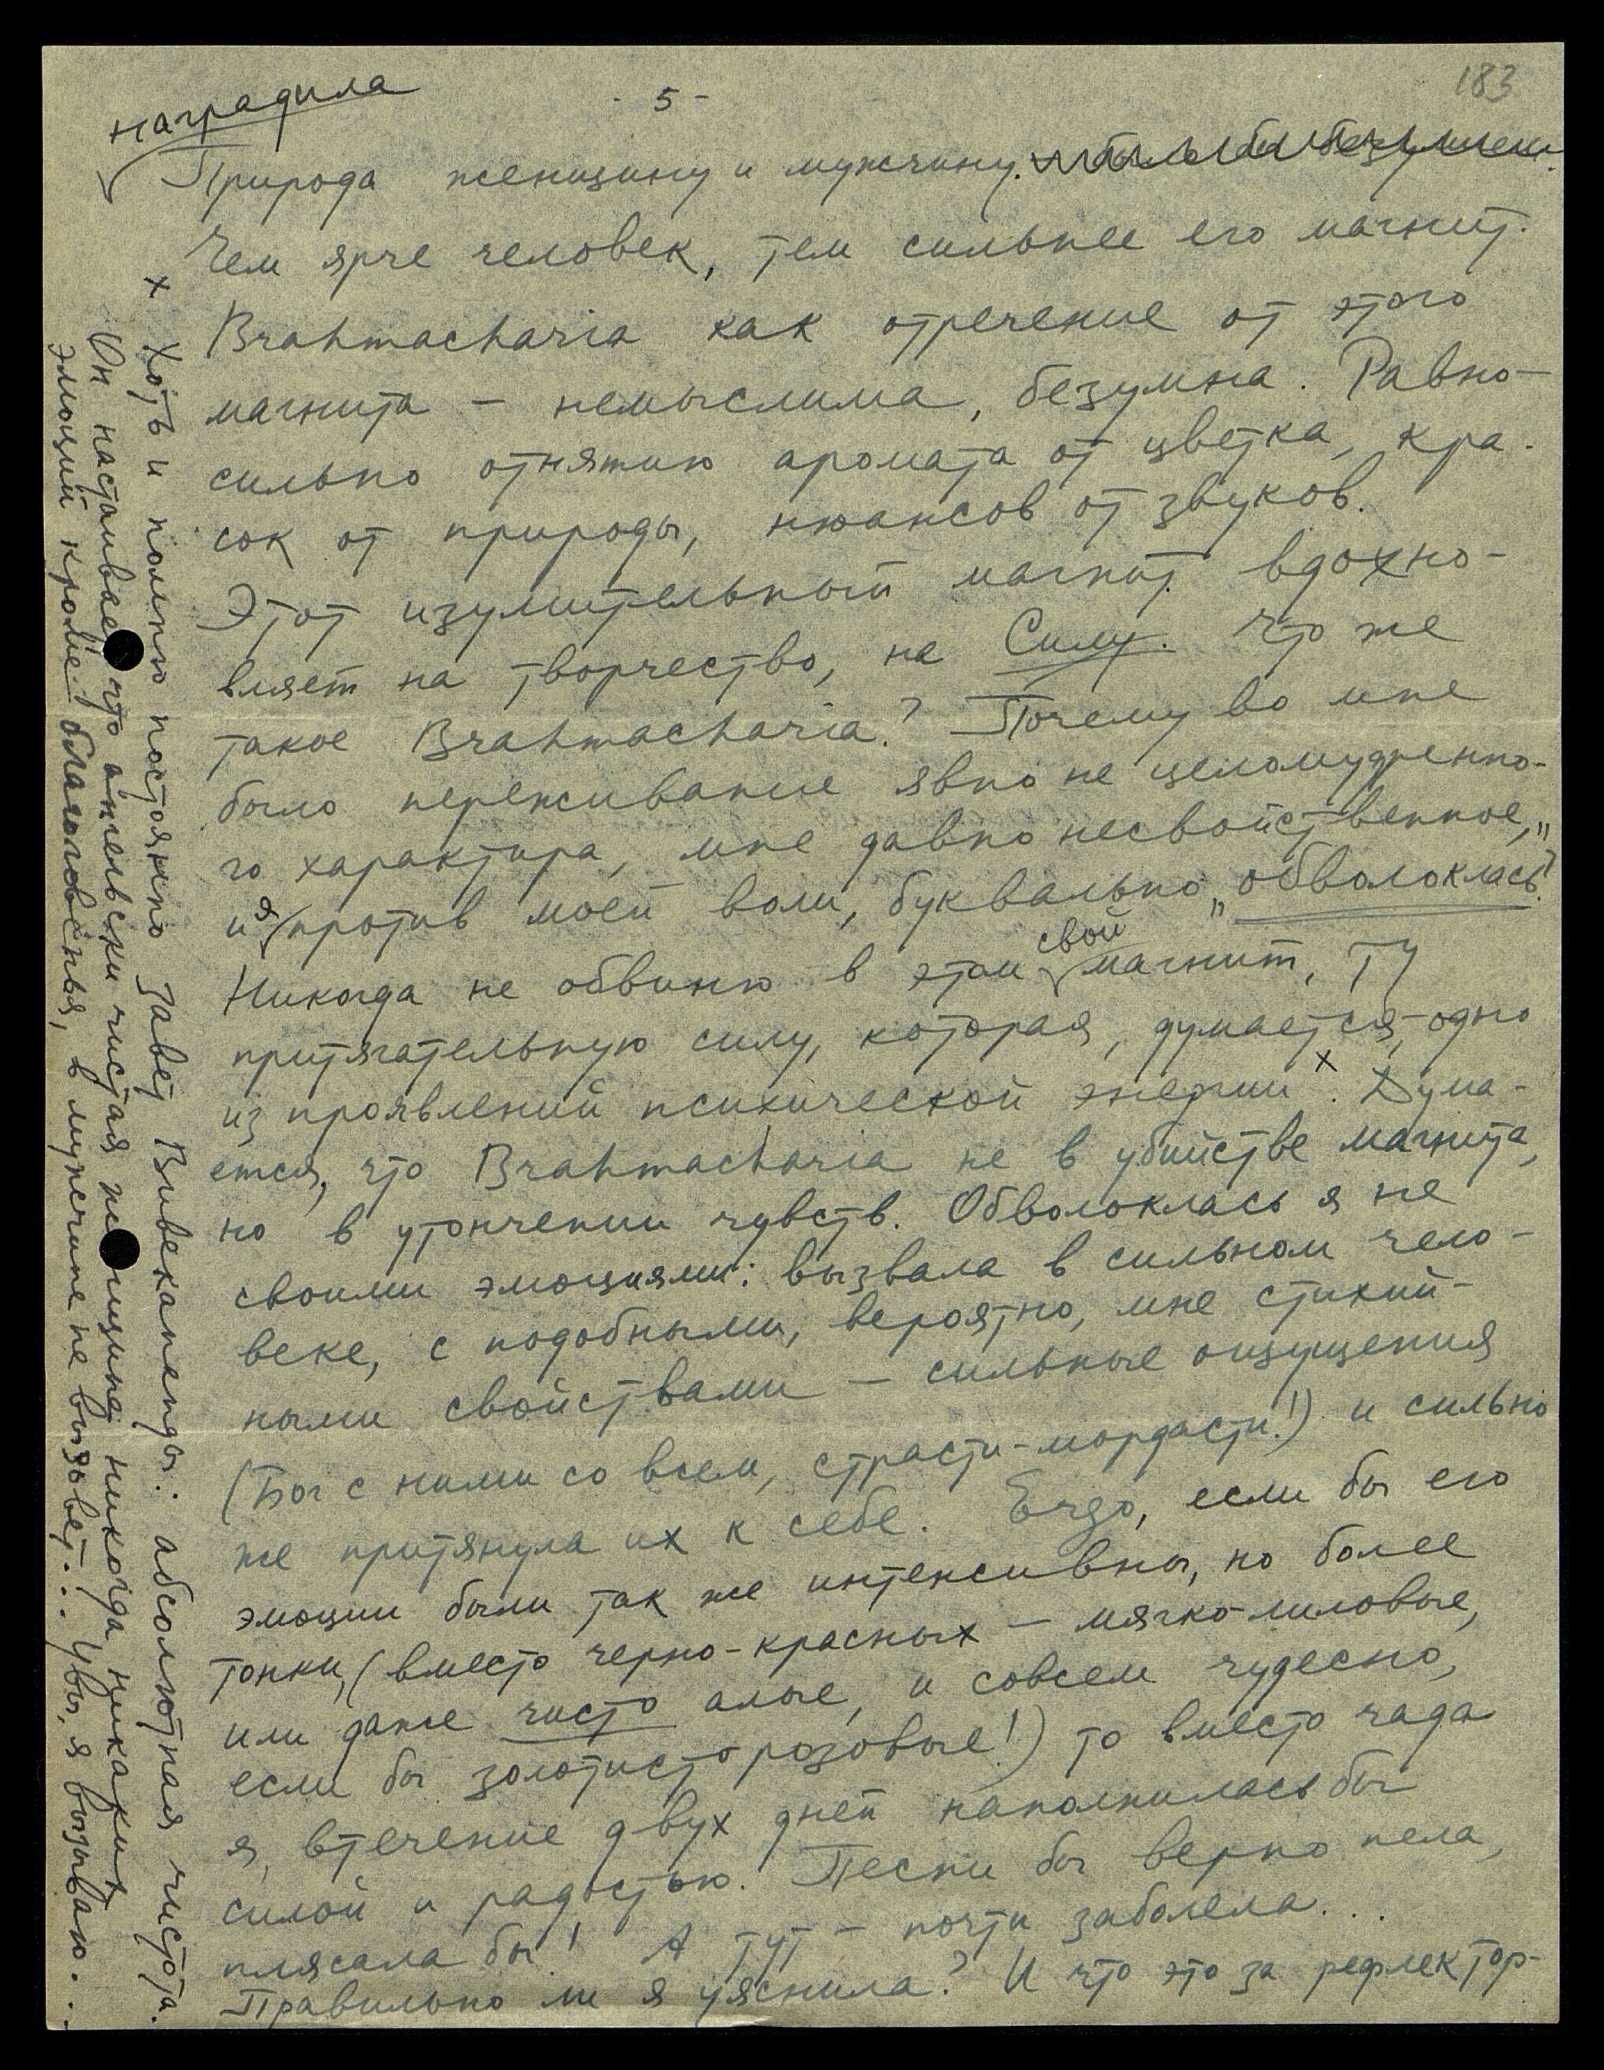 - 5 -
183
наградила
Природа женщину и мужчину.
Чем ярче человек, тем сильнее его магнит.
Brahmacharia как отречение от этого
магнита – немыслима, безумна. Равно-
сильно отнятию аромата от цветка, кра-
сок от природы, нюансов от звуков.
Этот изумительный магнит вдохно-
вляет на творчество, на Силу. Что же
такое Brahmacharia? Почему во мне
было переживание явно не целомудренно-
го характера, мне давно несвойственное,
и я против моей воли, буквально „обволоклась"?
Никогда не обвиню в этом свой магнит, ту
притягательную силу, которая, думается, одно
из проявлений психической энергии x. Дума-
ется, что Brahmacharia не в убийстве магнита,
но в утончении чувств. Обволоклась я не
своими эмоциями: вызвала в сильном чело-
веке, с подобными, вероятно, мне стихий-
ными свойствами – сильные ощущения
(Бог с ними со всем, страсти-мордасти!) и сильно
же притянула их к себе. Ergo, если бы его
эмоции были так же интенсивны, но более
тонки, (вместо черно-красных – мягко-лиловые,
или даже чисто алые, и совсем чудесно,
если бы золотисто розовые!) то вместо чада
я, втечение двух дней наполнилась бы
силой и радостью. Песни бы верно пела,
плясала бы! А тут – почти заболела...
Правильно ли я уяснила? И что это за рефлектор-
x Хоть и полню постоянно Завет Вивекананды: абсолютная чистота.
Он настаивает что ангельски чистая женщина никогда никаких
эмоций кроме благоговенья, в мужчине не вызовет... Увы, я вызываю...